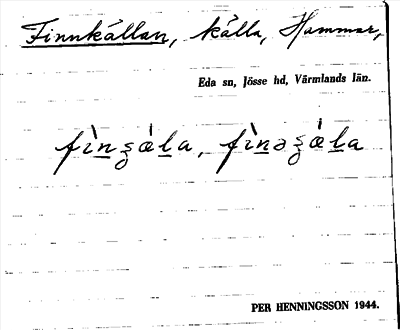 Finnkällan, källa, Hammar,
Eda sn, Jösse hd, Värmlands län.
fìn̲ʒæ̀l̲a, fìn̲əʒæ̀l̲a
PER HENNINGSSON 1944.